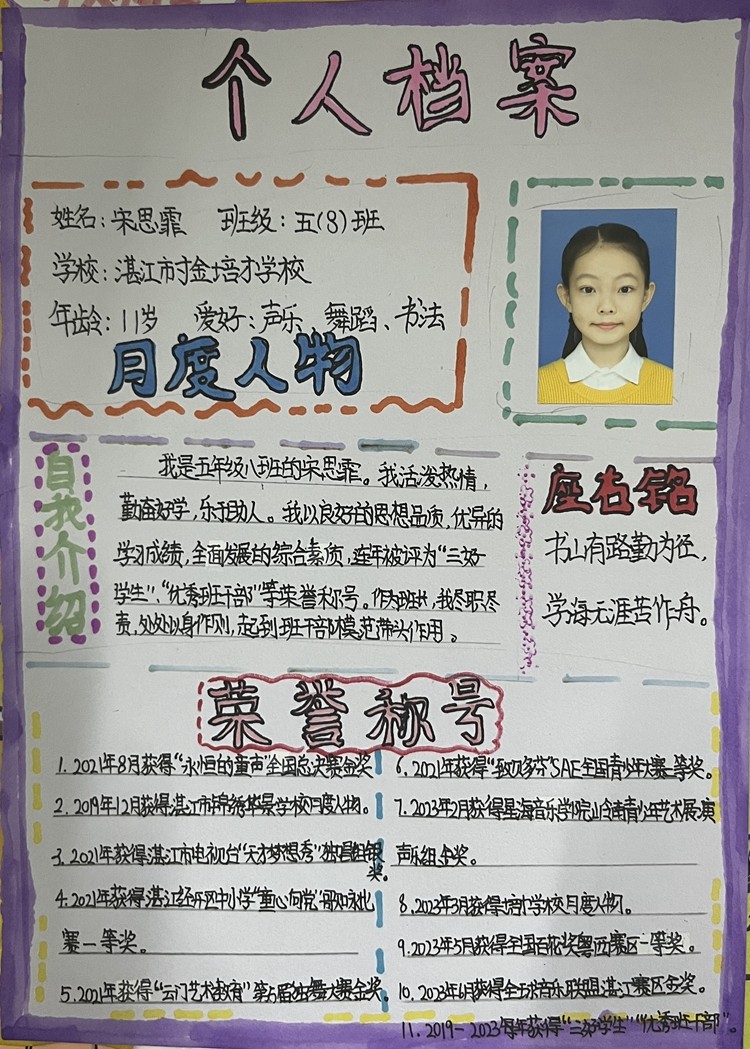 个人档案
姓名：宋思霏 班级：五(8)班
学校：湛江市寸金培才学校
年龄：11岁 爱好：声乐、舞蹈、书法
月度人物
自我介绍
我是五年级八班的宋思霏。我活泼热情，
勤奋好学，乐于助人。我以良好的思想品质，优异的
学习成绩，全面发展的综合素质，连年被评为“三好
学生”、“优秀班干部”等荣誉称号。作为班长，我尽职尽
责，处处以身作则，起到班干部模范带头作用。
座右铭
书山有路勤为径，
学海无涯苦作舟。
荣誉称号
1. 2021年8月获得“永恒的童声”全国总决赛金奖
2. 2019年12月获得湛江市锦绣华景学校月度人物。
3. 2021年获得湛江市电视台“天才梦想秀”独唱组银
奖。
4. 2021年获得湛江经开区中小学“童心向党”歌如永化
赛一等奖。
5. 2021年获得“云门艺术教育”第五届独舞大赛金奖。
6. 2021年获得“致贝多芬”SAE全国青少年大赛一等奖。
7. 2023年2月获得星海音乐学院岭南青少年艺术展演
声乐组金奖。
8. 2023年3月获得培才学校月度人物。
9. 2023年5月获得全国百花奖粤西赛区一等奖。
10. 2023年6月获得全球音乐联盟湛江赛区金奖。
11. 2019-2023每年获得“三好学生”“优秀班干部”。